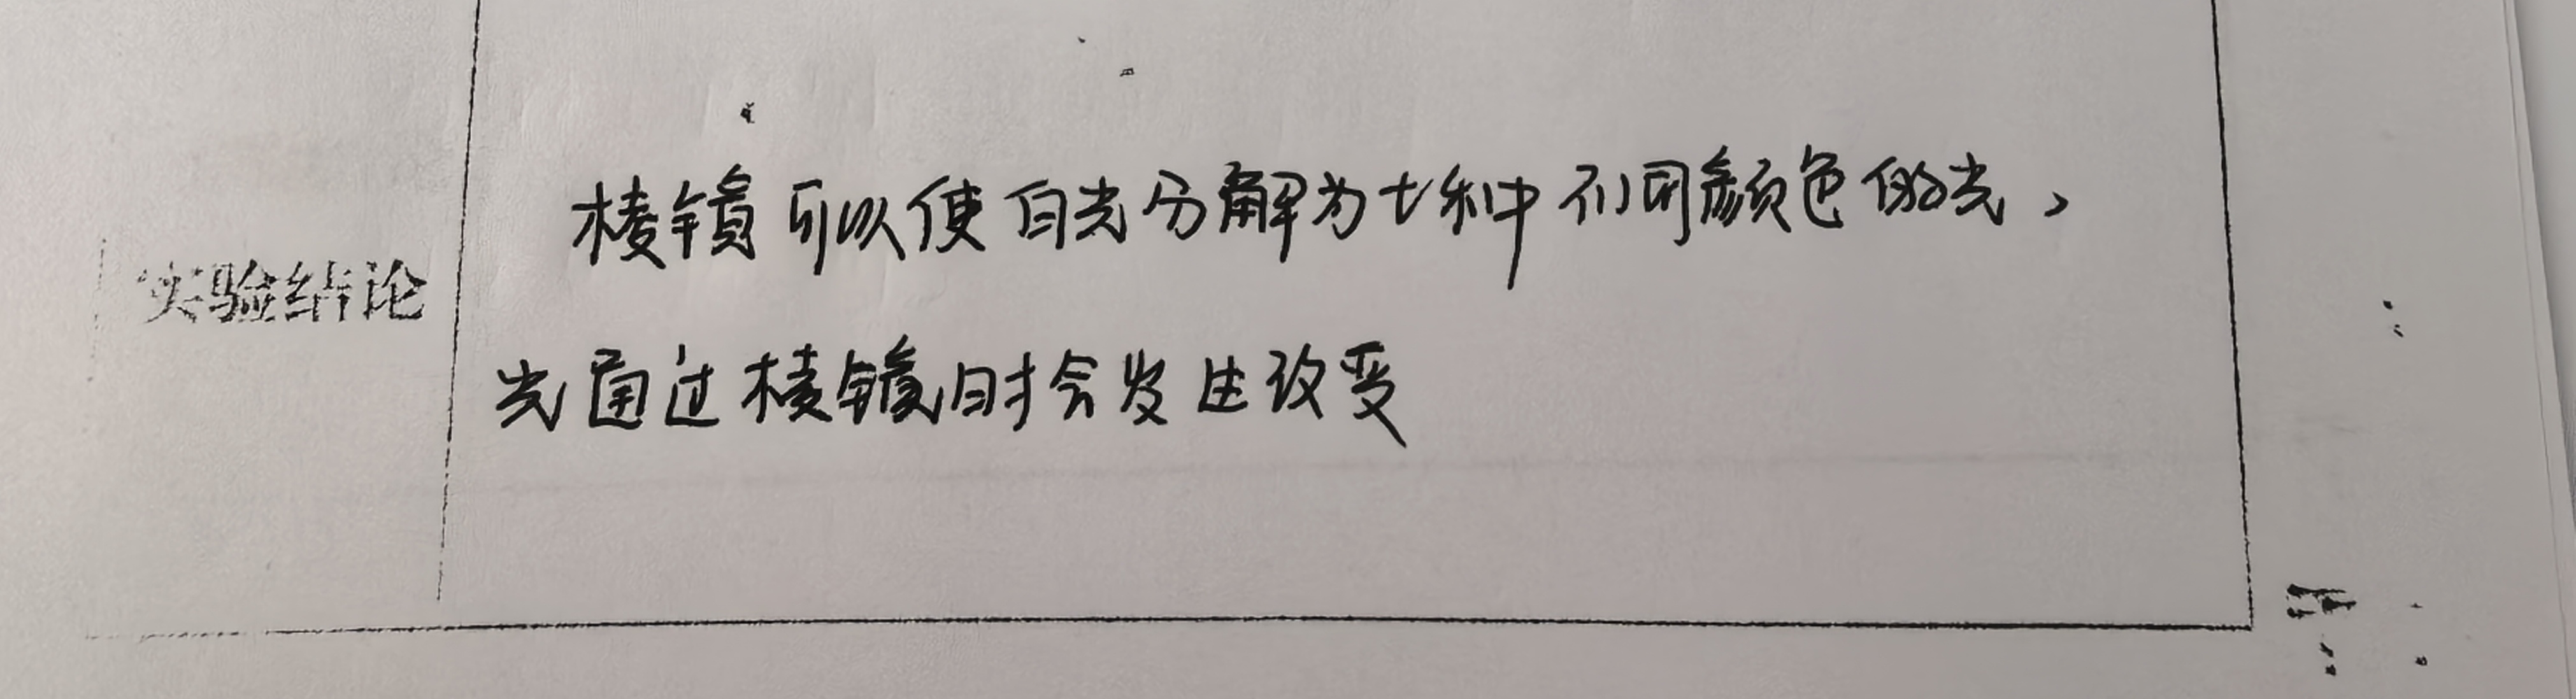 棱镜可以使白光分解为七种不同颜色的光，
实验结论
光通过棱镜时会发生改变